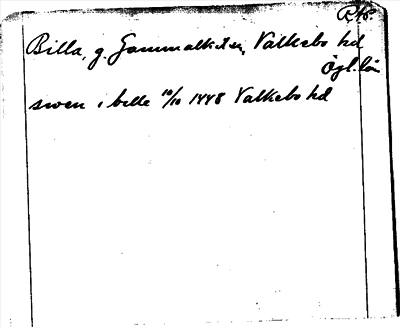 Billa, g. Gammalkilen, Valkebo hd
Ögl. län
swen i bille 10/10 1448 Valkebo hd